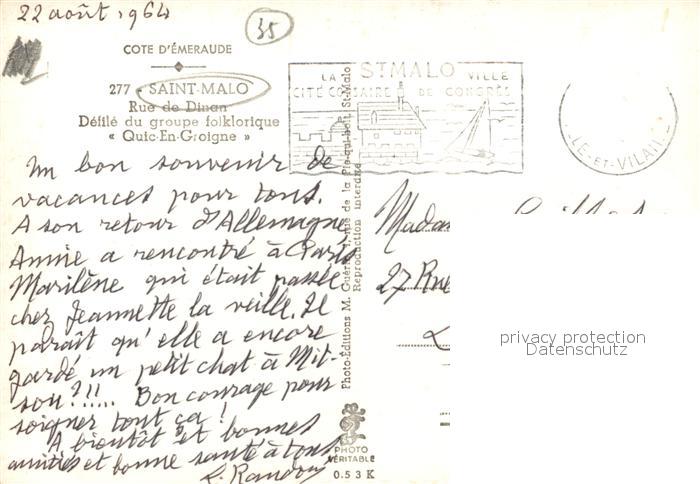 22 août 1964
35
COTE D'ÉMERAUDE
277 - SAINT-MALO
Rue de Dinan
Défilé du groupe folklorique
« Quic-En-Groigne »
LA ST MALO VILLE
CITÉ CORSAIRE DE CONGRÈS
ILLE-ET-VILAINE
Un bon souvenir de
vacances pour tous.
A son retour d'Allemagne
Annie a rencontré à Paris
Marilène qui était passée
chez Jeannette la veille. Il
paraît qu'elle a encore
gardé un petit chat à Mit-
sou?!!.... Bon courage pour
soigner tout ça!
A bientôt et bonnes
amitiés et bonne santé à tous
Photo-Éditions M. Guérin, rue de la Pie-qui-boit, St-Malo
Reproduction interdite
PHOTO
VÉRITABLE
0.5 3 K
27 Rue
privacy protection
Datenschutz